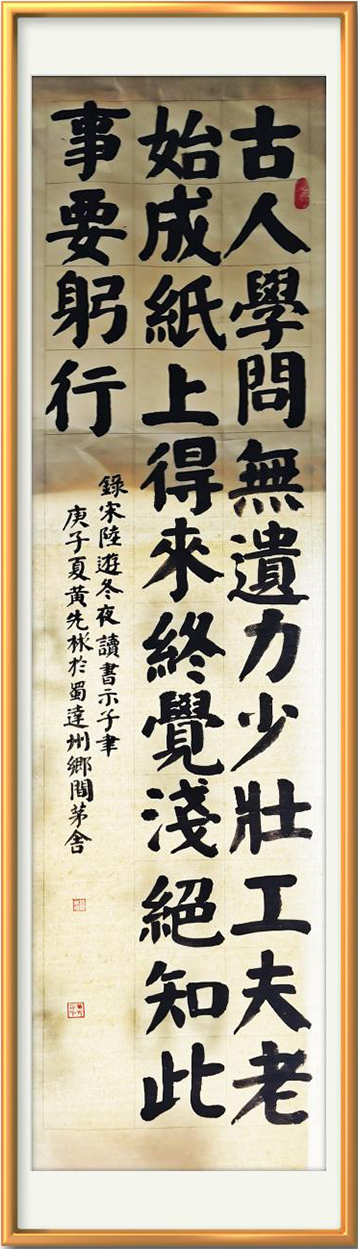 古人學問無遺力少壯工夫老
始成紙上得來終覺淺絕知此
事要躬行
錄宋陸遊冬夜讀書示子聿
庚子夏黃先林於蜀達州鄉間茅舍